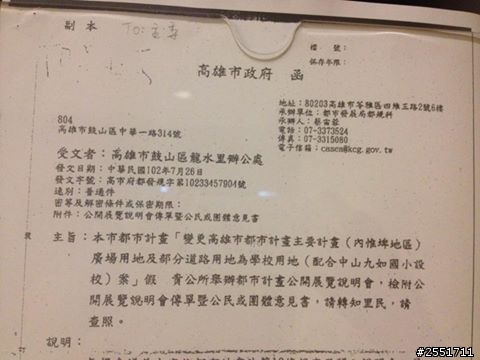 副本 TO:
檔 號：
保存年限：
高雄市政府 函
地址：80203高雄市苓雅區四維三路2號6樓
承辦單位：都市發展局都規科
承辦人：蔡宙蓉
電話：07-3373524
傳真：07-3315080
電子信箱：cassea@kcg.gov.tw
804
高雄市鼓山區中華一路314號
受文者：高雄市鼓山區龍水里辦公處
發文日期：中華民國102年7月26日
發文字號：高市府都發規字第10233457904號
速別：普通件
密等及解密條件或保密期限：
附件：公開展覽說明會傳單暨公民或團體意見書
主旨：本市都市計畫「變更高雄市都市計畫主要計畫（內惟埤地區）
廣場用地及部分道路用地為學校用地（配合中山九如國小設
校）案」假 貴公所舉辦都市計畫公開展覽說明會，檢附公
開展覽說明會傳單暨公民或團體意見書，請轉知里民，請
查照。
說明：
#2551711